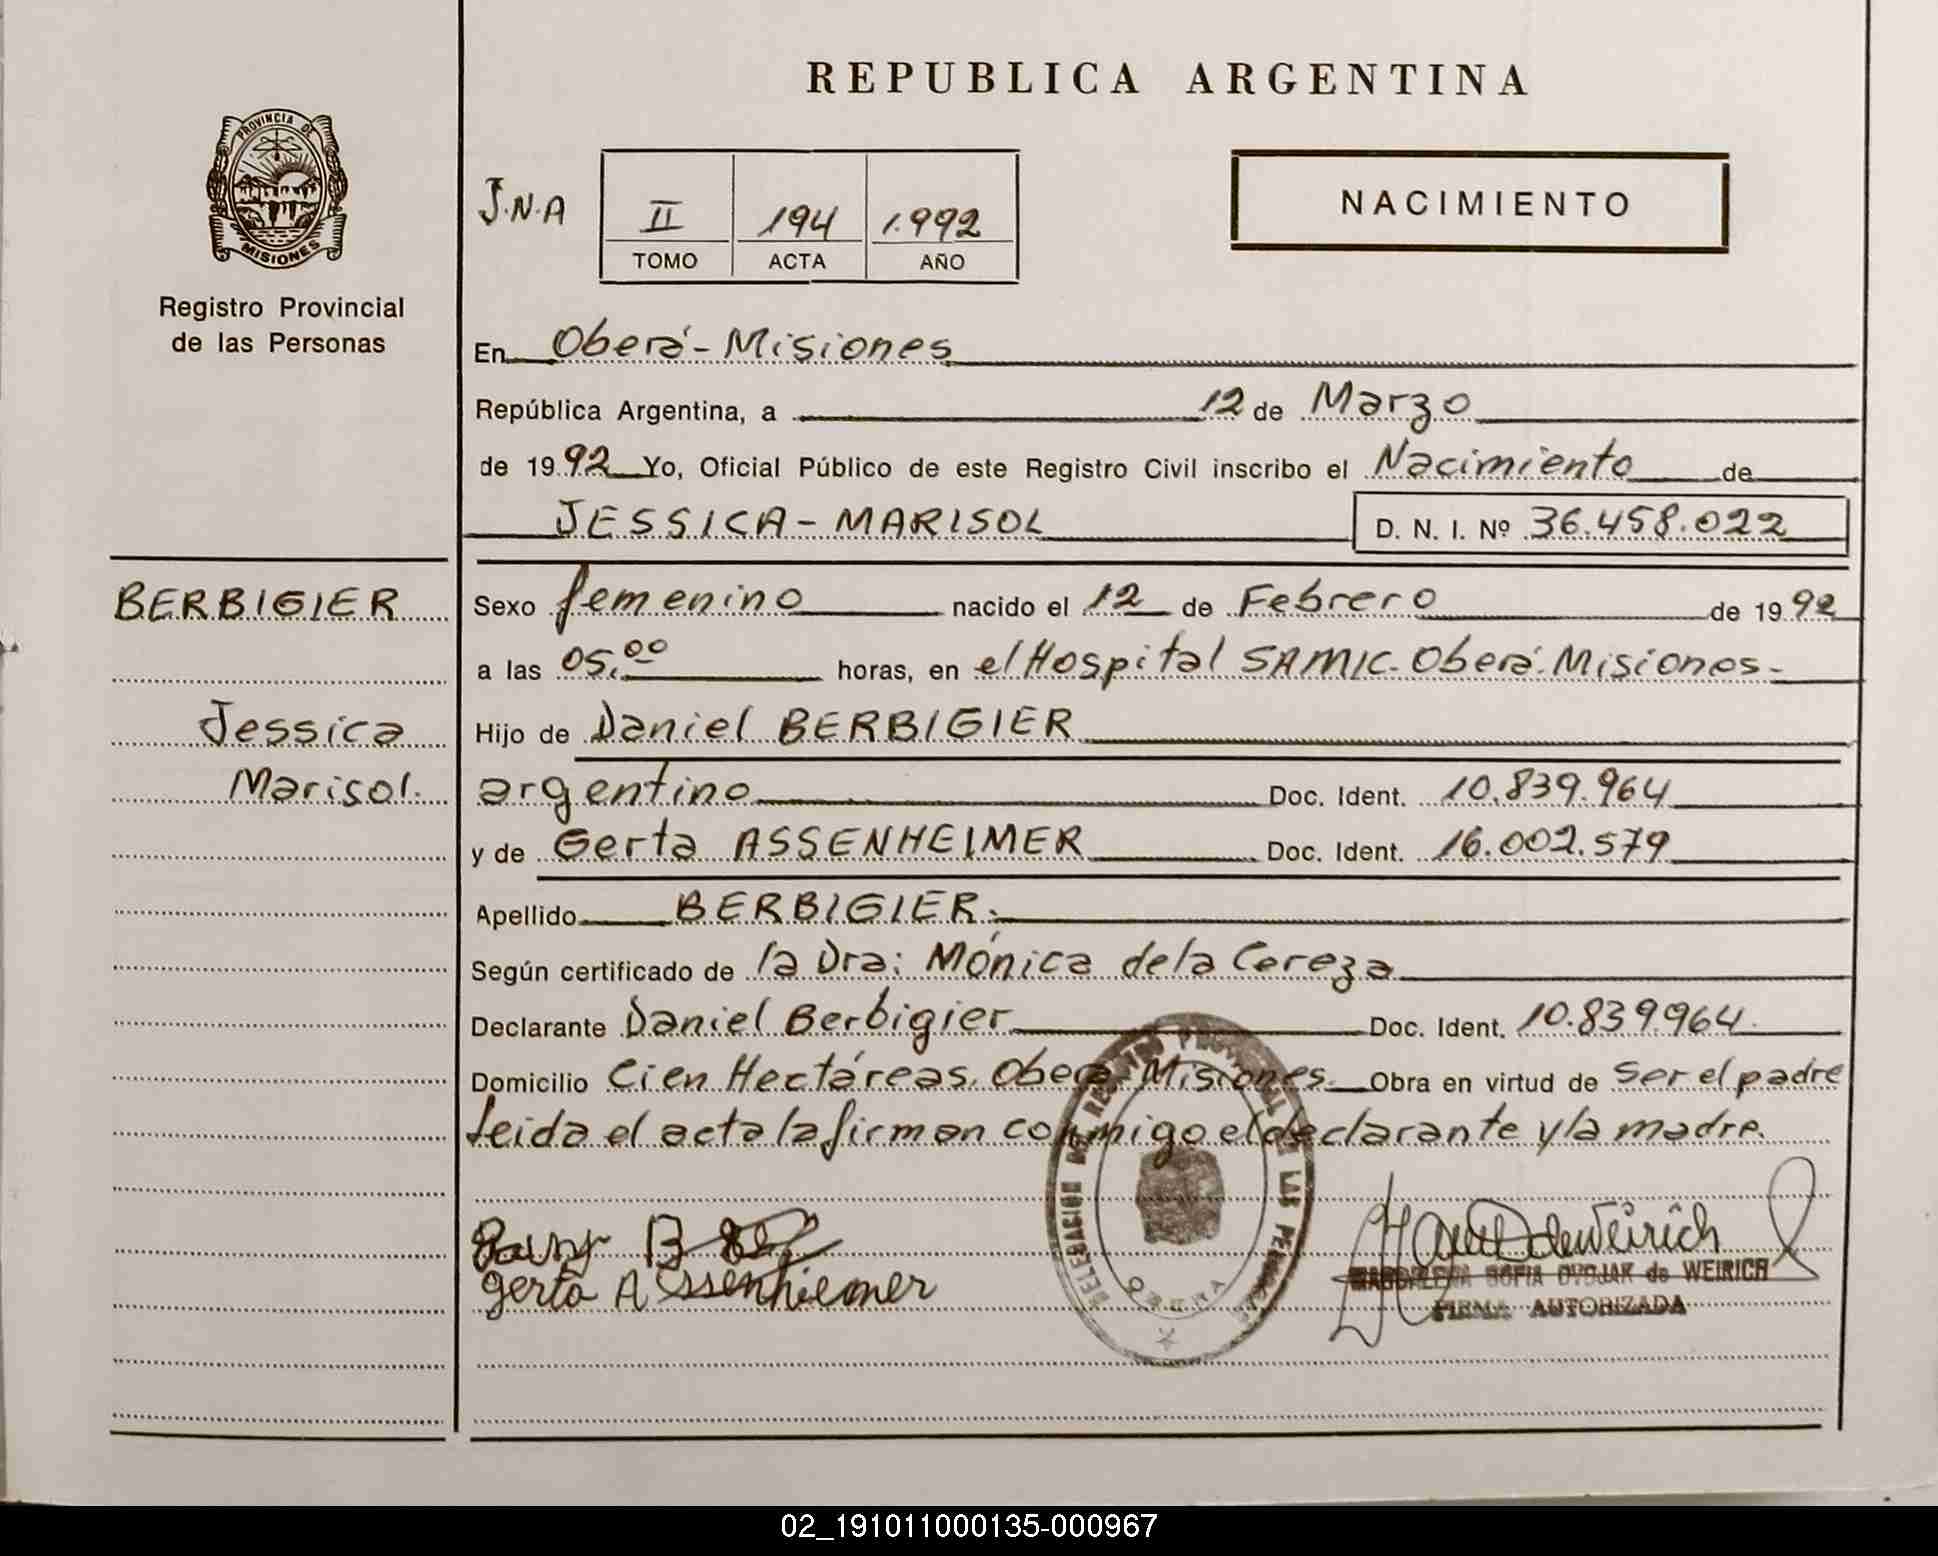 PROVINCIA DE
MISIONES
Registro Provincial
de las Personas
REPUBLICA ARGENTINA
J.N.A
II 194 1.992
TOMO ACTA AÑO
NACIMIENTO
En Oberá-Misiones
República Argentina, a 12 de Marzo
de 1992 Yo, Oficial Público de este Registro Civil inscribo el Nacimiento de
JESSICA-MARISOL D. N. I. Nº 36.458.022
BERBIGIER
Jessica
Marisol.
Sexo femenino nacido el 12 de Febrero de 1992
a las 05,00 horas, en el Hospital SAMIC-Oberá-Misiones-
Hijo de Daniel BERBIGIER
argentino Doc. Ident. 10.839.964
y de Gerta ASSENHEIMER Doc. Ident. 16.002.579
Apellido BERBIGIER.
Según certificado de la Dra: Mónica de la Cereza
Declarante Daniel Berbigier Doc. Ident. 10.839.964
Domicilio Cien Hectáreas. Oberá-Misiones. Obra en virtud de ser el padre
leida el acta la firman conmigo el declarante y la madre.
DELEGACION DEL REGISTRO PROVINCIAL DE LAS PERSONAS
OBERA
Gerta Assenhiemer
de Weirich
MAGDALENA SOFIA de WEIRICH
FIRMA AUTORIZADA
02_191011000135-000967